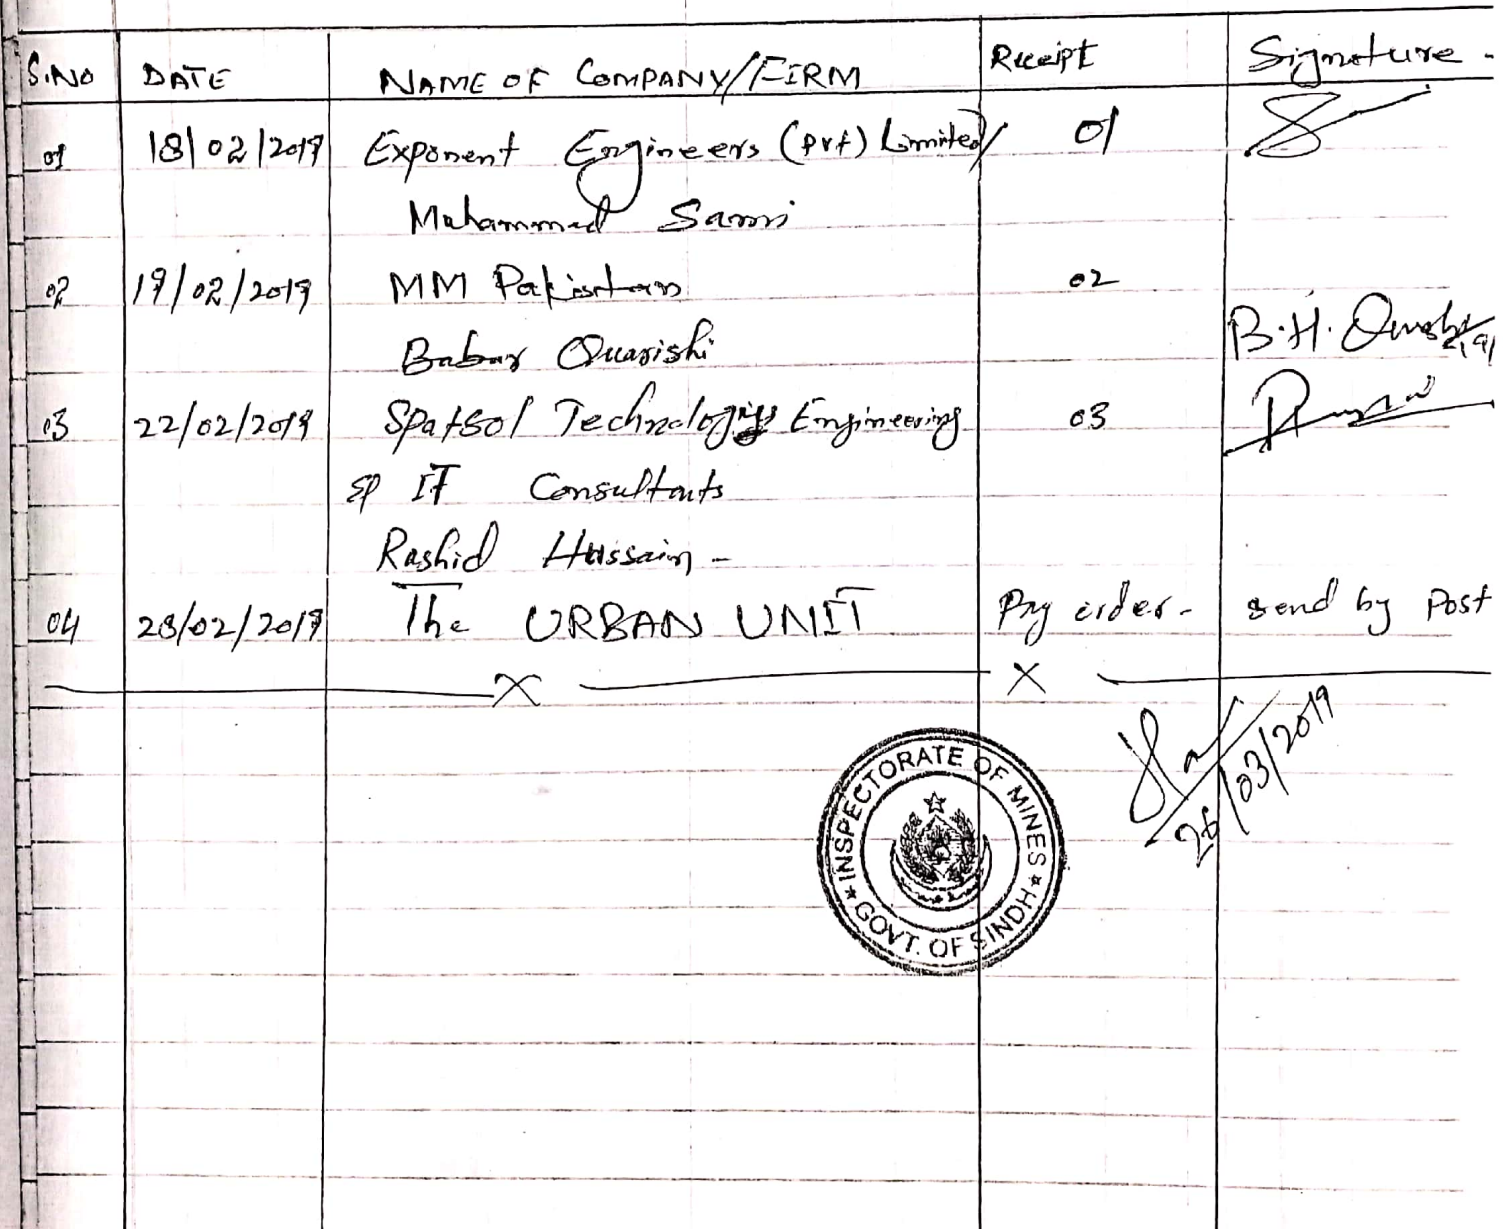 S.NO DATE NAME OF COMPANY/FIRM Receipt Signature -
01 18/02/2019 Exponent Engineers (pvt) Limited/ 01
Muhammed Sami
02 19/02/2019 MM Pakistan 02
Babar Quarishi B.H.
03 22/02/2019 Spatsol Technologies Engineering 03
IT Consultants
Rashid Hussain -
04 28/02/2019 The URBAN UNIT Pay order - send by Post
X X
26/03/2019
INSPECTORATE OF MINES
GOVT. OF SINDH